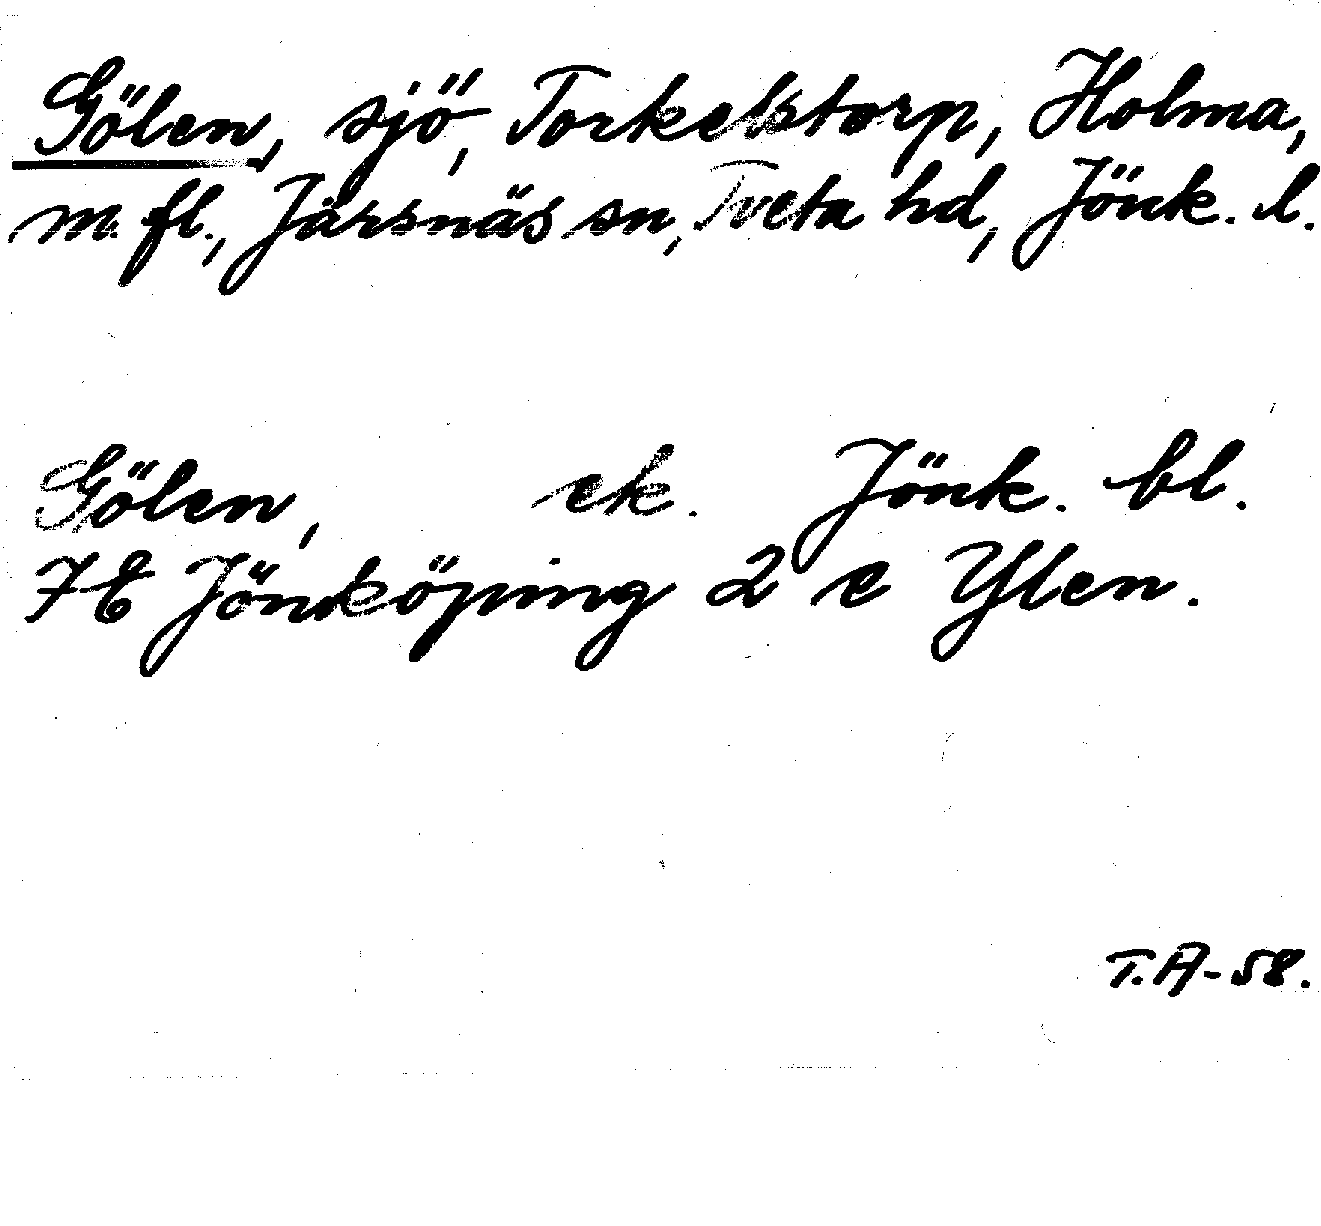 Gölen, sjö, Torkelstorp, Holma,
m. fl., Järsnäs sn, Tveta hd, Jönk. l.
Gölen, ek. Jönk. bl.
7E Jönköping 2 e Ylen.
T.A-58.